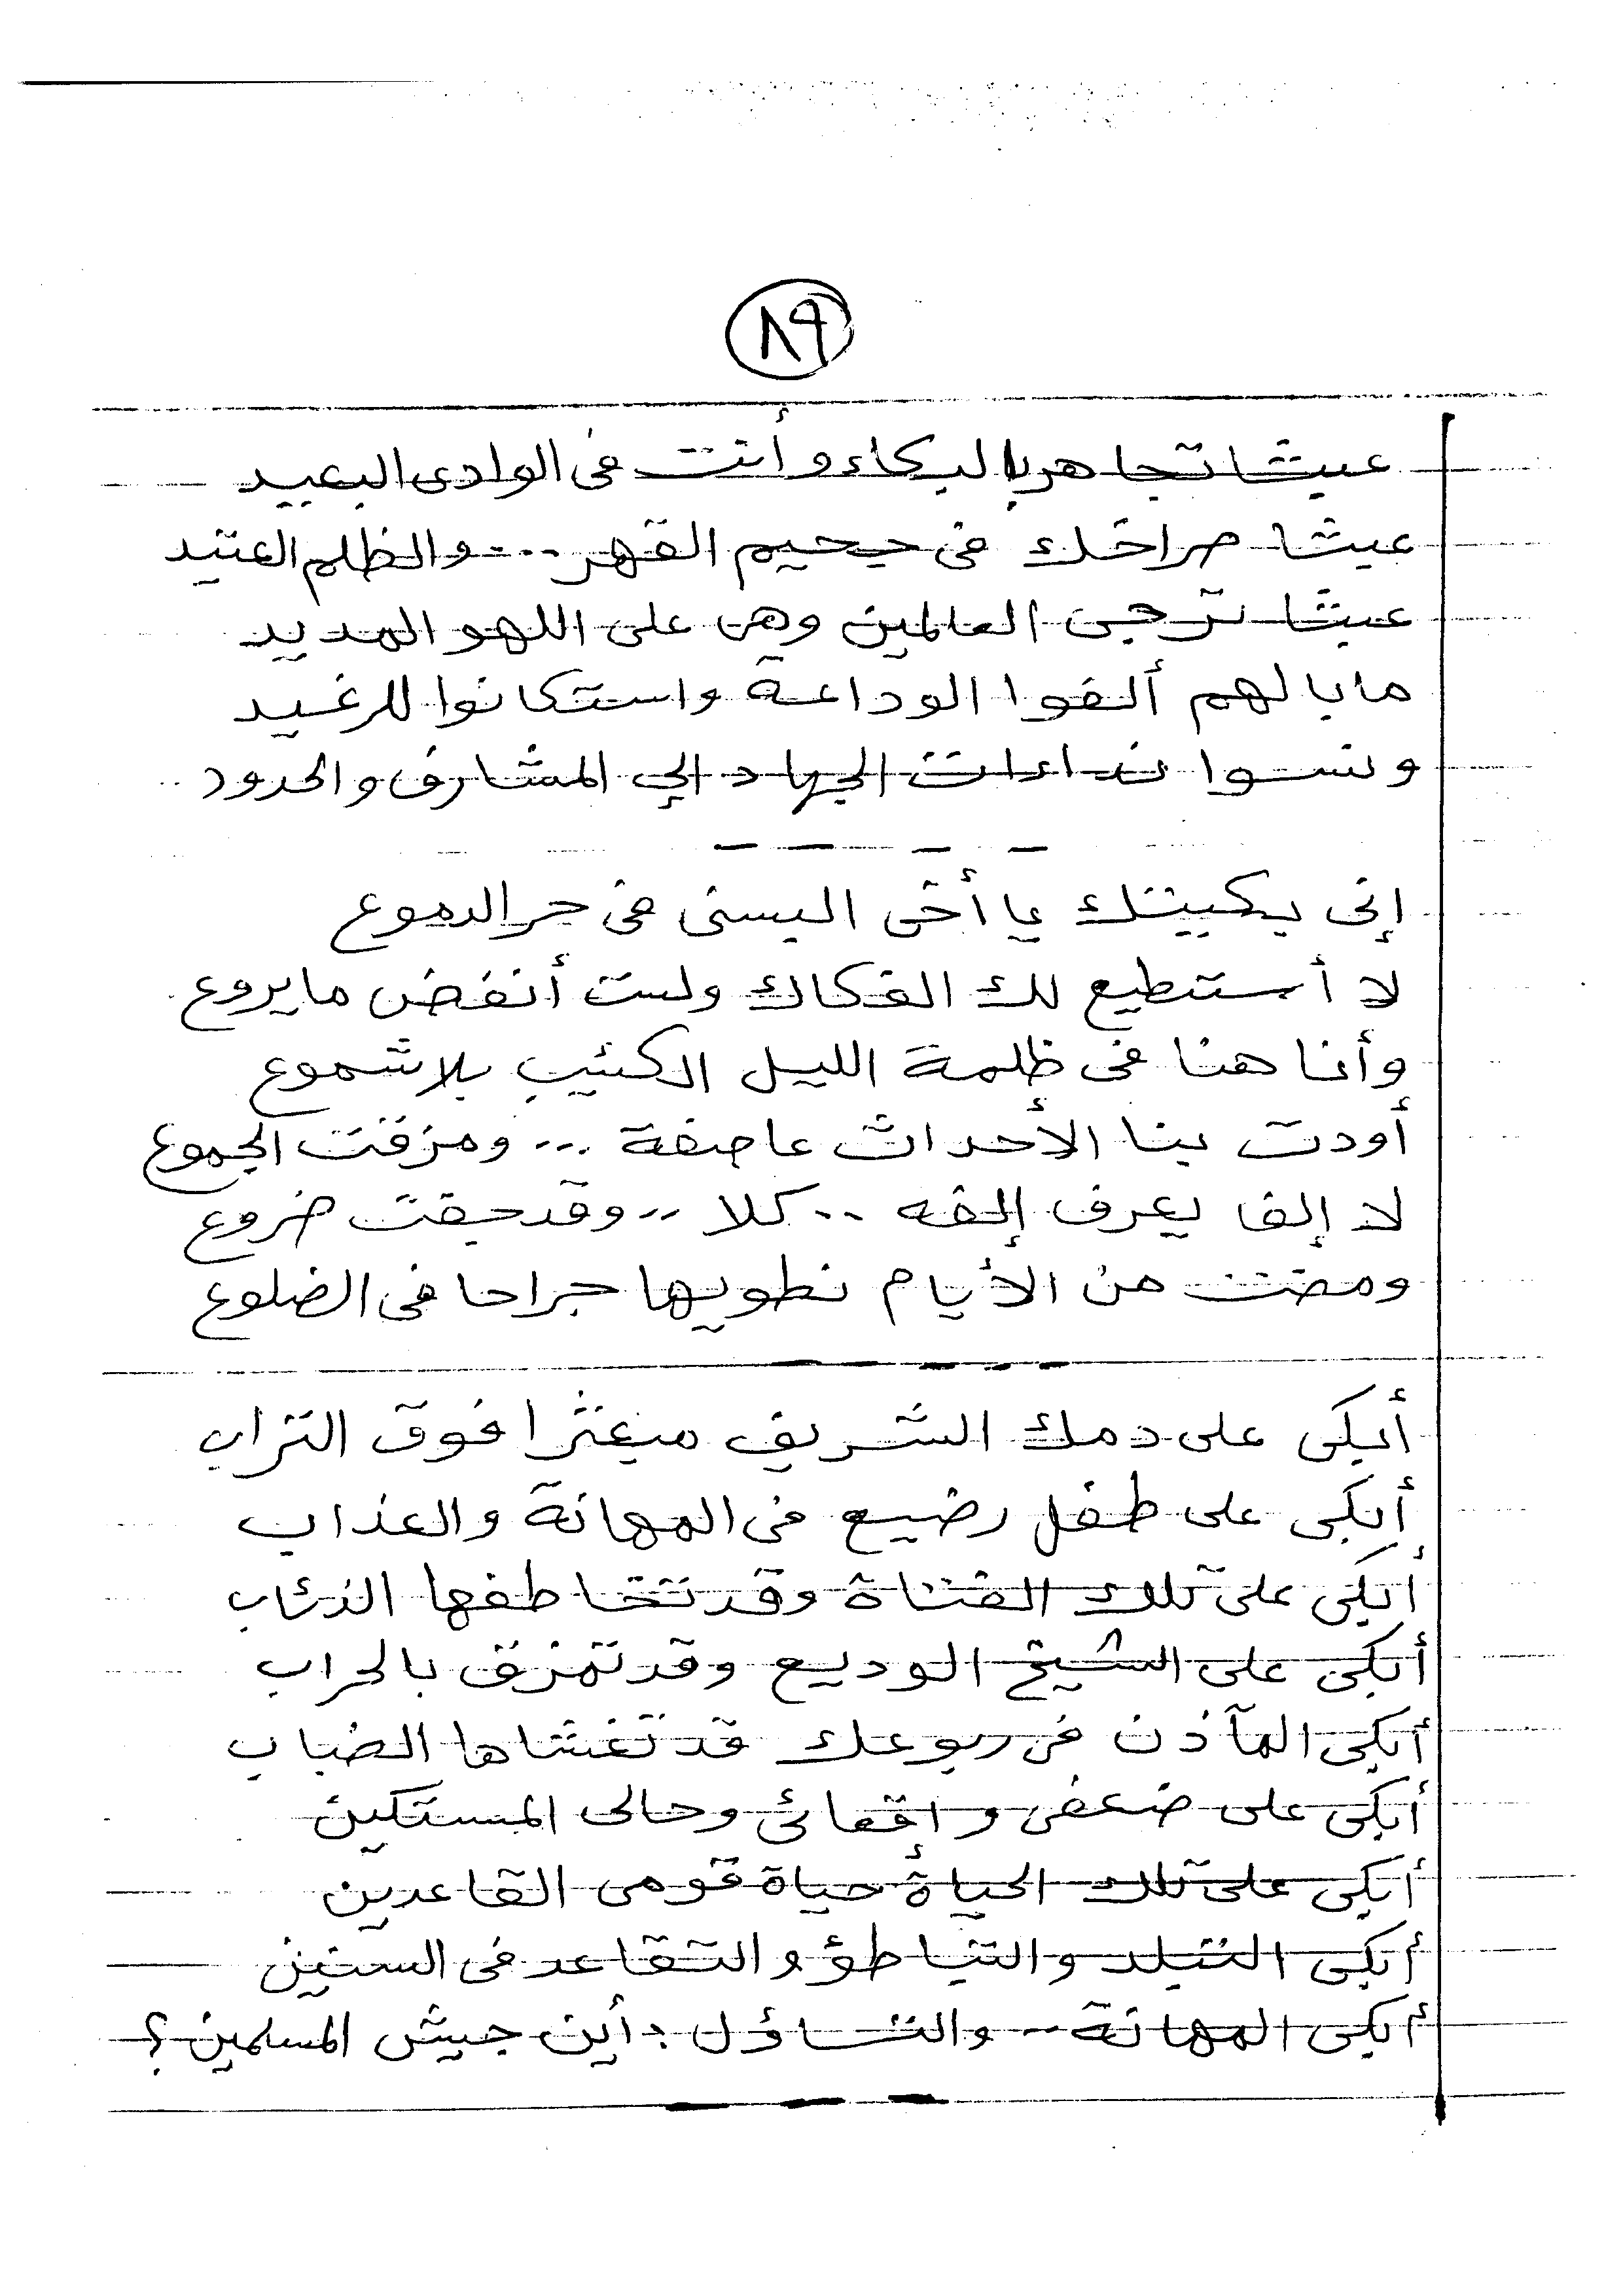 ٨٩
عبثا تجاهر بالبكاء وأنت فى الوادى البعيد
عبثا صراخك فى جحيم القهر ... والظلم العتيد
عبثا ترجى العالمين وهى على اللهو المديد
ما بالهم ألفوا الوداعة واستكانوا للرغيد
ونسوا نداءات الجهاد إلي المشارف والحدود
إنى بكيتك يا أخى البسنى فى حر الدموع
لا أستطيع لك الفكاك ولست أنفض ما يروع
وأنا هنا فى ظلمة الليل الكئيب بلا شموع
أودت بنا الأحداث عاصفة ... ومزقت الجموع
لا إلف يعرف إلفه .. كلا .. وقد جفت ضروع
ومضت من الأيام نطويها جراحا فى الضلوع
أبكى على دمك الشريف مبعثرا فوق التراب
أبكى على طفل رضيع فى المهانة والعذاب
أبكى على تلك الفتاة وقد تخاطفها الذئاب
أبكى على الشيخ الوديع وقد تمزق بالحراب
أبكى المآذن فى ربوعك قد تغشاها الضباب
أبكى على ضعفى وإقعائى وحالى المستكين
أبكى على تلك الحياة حياة قومى القاعدين
أبكى التبلد والتباطؤ والتقاعد فى السنين
أبكى المهانة .. والتساؤل : أين جيش المسلمين ؟